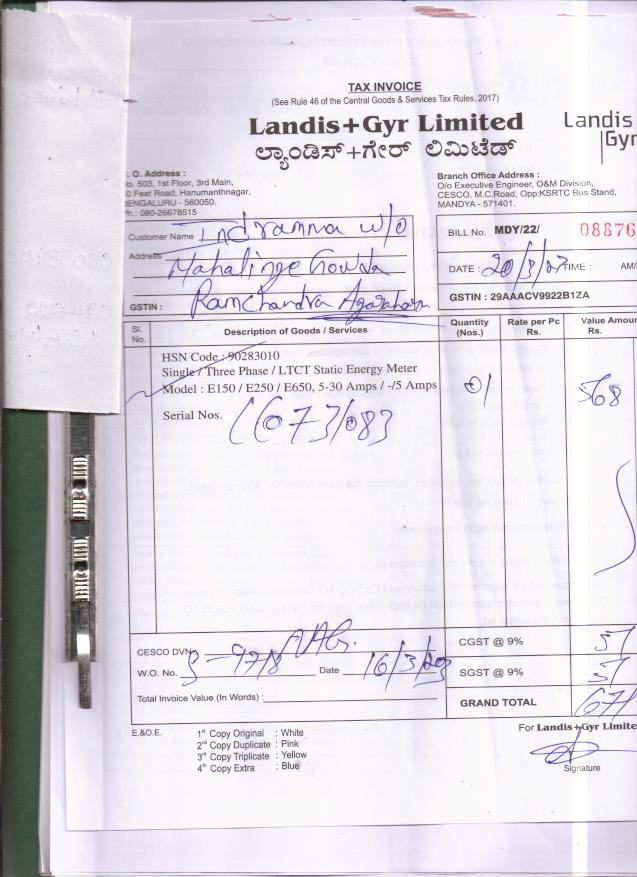 TAX INVOICE
(See Rule 46 of the Central Goods & Services Tax Rules, 2017)
Landis+Gyr Limited
Landis
Gyr
ಲ್ಯಾಂಡಿಸ್+ಗೇರ್ ಲಿಮಿಟೆಡ್
. O. Address :
o. 503, 1st Floor, 3rd Main,
0 Feet Road, Hanumanthnagar,
BENGALURU - 560050.
Ph.: 080-26678515
Branch Office Address :
O/o Executive Engineer, O&M Division,
CESCO, M.C.Road, Opp:KSRTC Bus Stand,
MANDYA - 571401.
Customer Name Indramma w/o
Address Mahalinge Gowda
GSTIN : Ramchandra Agarahara
BILL No. MDY/22/ 08876
DATE : 20/3/23 TIME : AM/
GSTIN : 29AAACV9922B1ZA
Sl. No. Description of Goods / Services Quantity (Nos.) Rate per Pc Rs. Value Amoun Rs.
HSN Code : 90283010
Single / Three Phase / LTCT Static Energy Meter
Model : E150 / E250 / E650, 5-30 Amps / -/5 Amps 01 568
Serial Nos.
CESCO DVN
W.O. No. Date 16/3/23
Total Invoice Value (In Words) :
CGST @ 9% 51
SGST @ 9% 51
GRAND TOTAL 671
E.&O.E.
1st Copy Original : White
2nd Copy Duplicate : Pink
3rd Copy Triplicate : Yellow
4th Copy Extra : Blue
For Landis+Gyr Limite
Signature